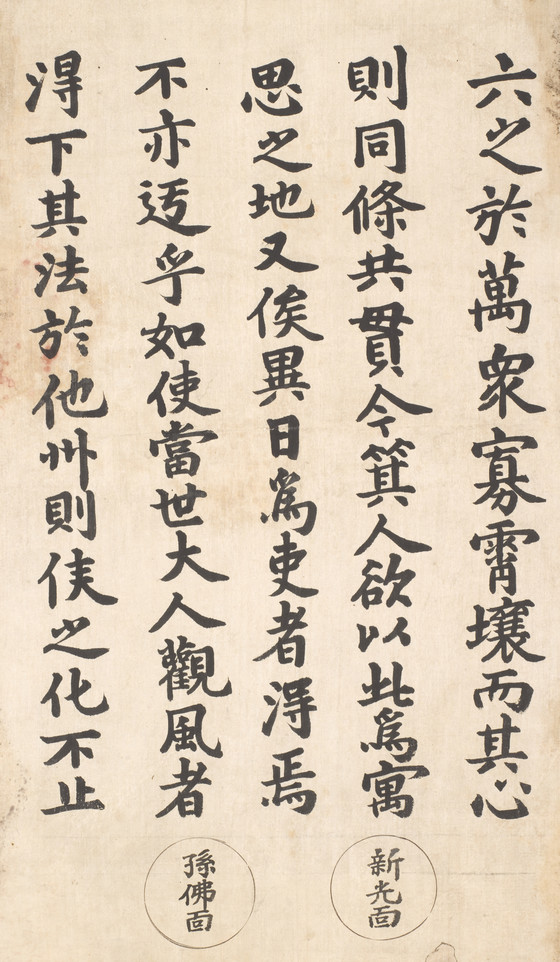 六之於萬衆寡霄壤而其心
則同條共貫今箕人欲以此爲寓
思之地又俟異日爲吏者淂焉
不亦迃乎如使當世大人觀風者
淂下其法於他州則侯之化不止
新光面
孫佛面